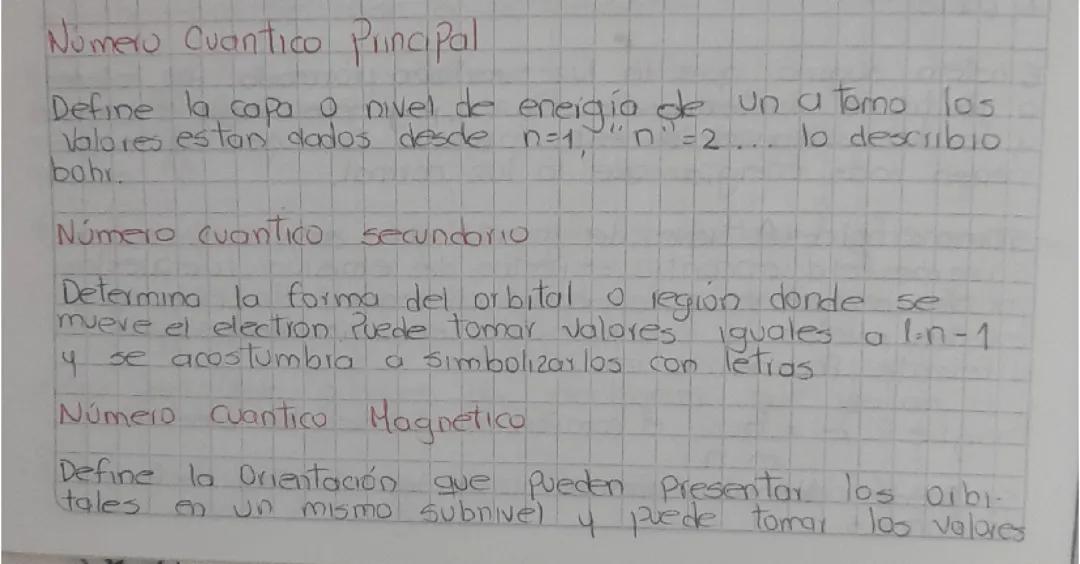 Número Cuántico Principal
Define la capa o nivel de energía de un atomo los
valores estan dados desde n=1, "n"=2... lo describio
bohr.
Número cuantico secundario
Determina la forma del orbital o región donde se
mueve el electron. Puede tomar valores iguales a l=n-1
y se acostumbra a simbolizarlos con letras
Número cuantico Magnetico
Define la Orientación que pueden presentar los orbi-
tales en un mismo subnivel y puede tomar los valores